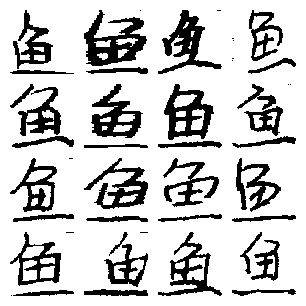 鱼鱼鱼鱼
鱼鱼鱼鱼
鱼鱼鱼鱼
鱼鱼鱼鱼